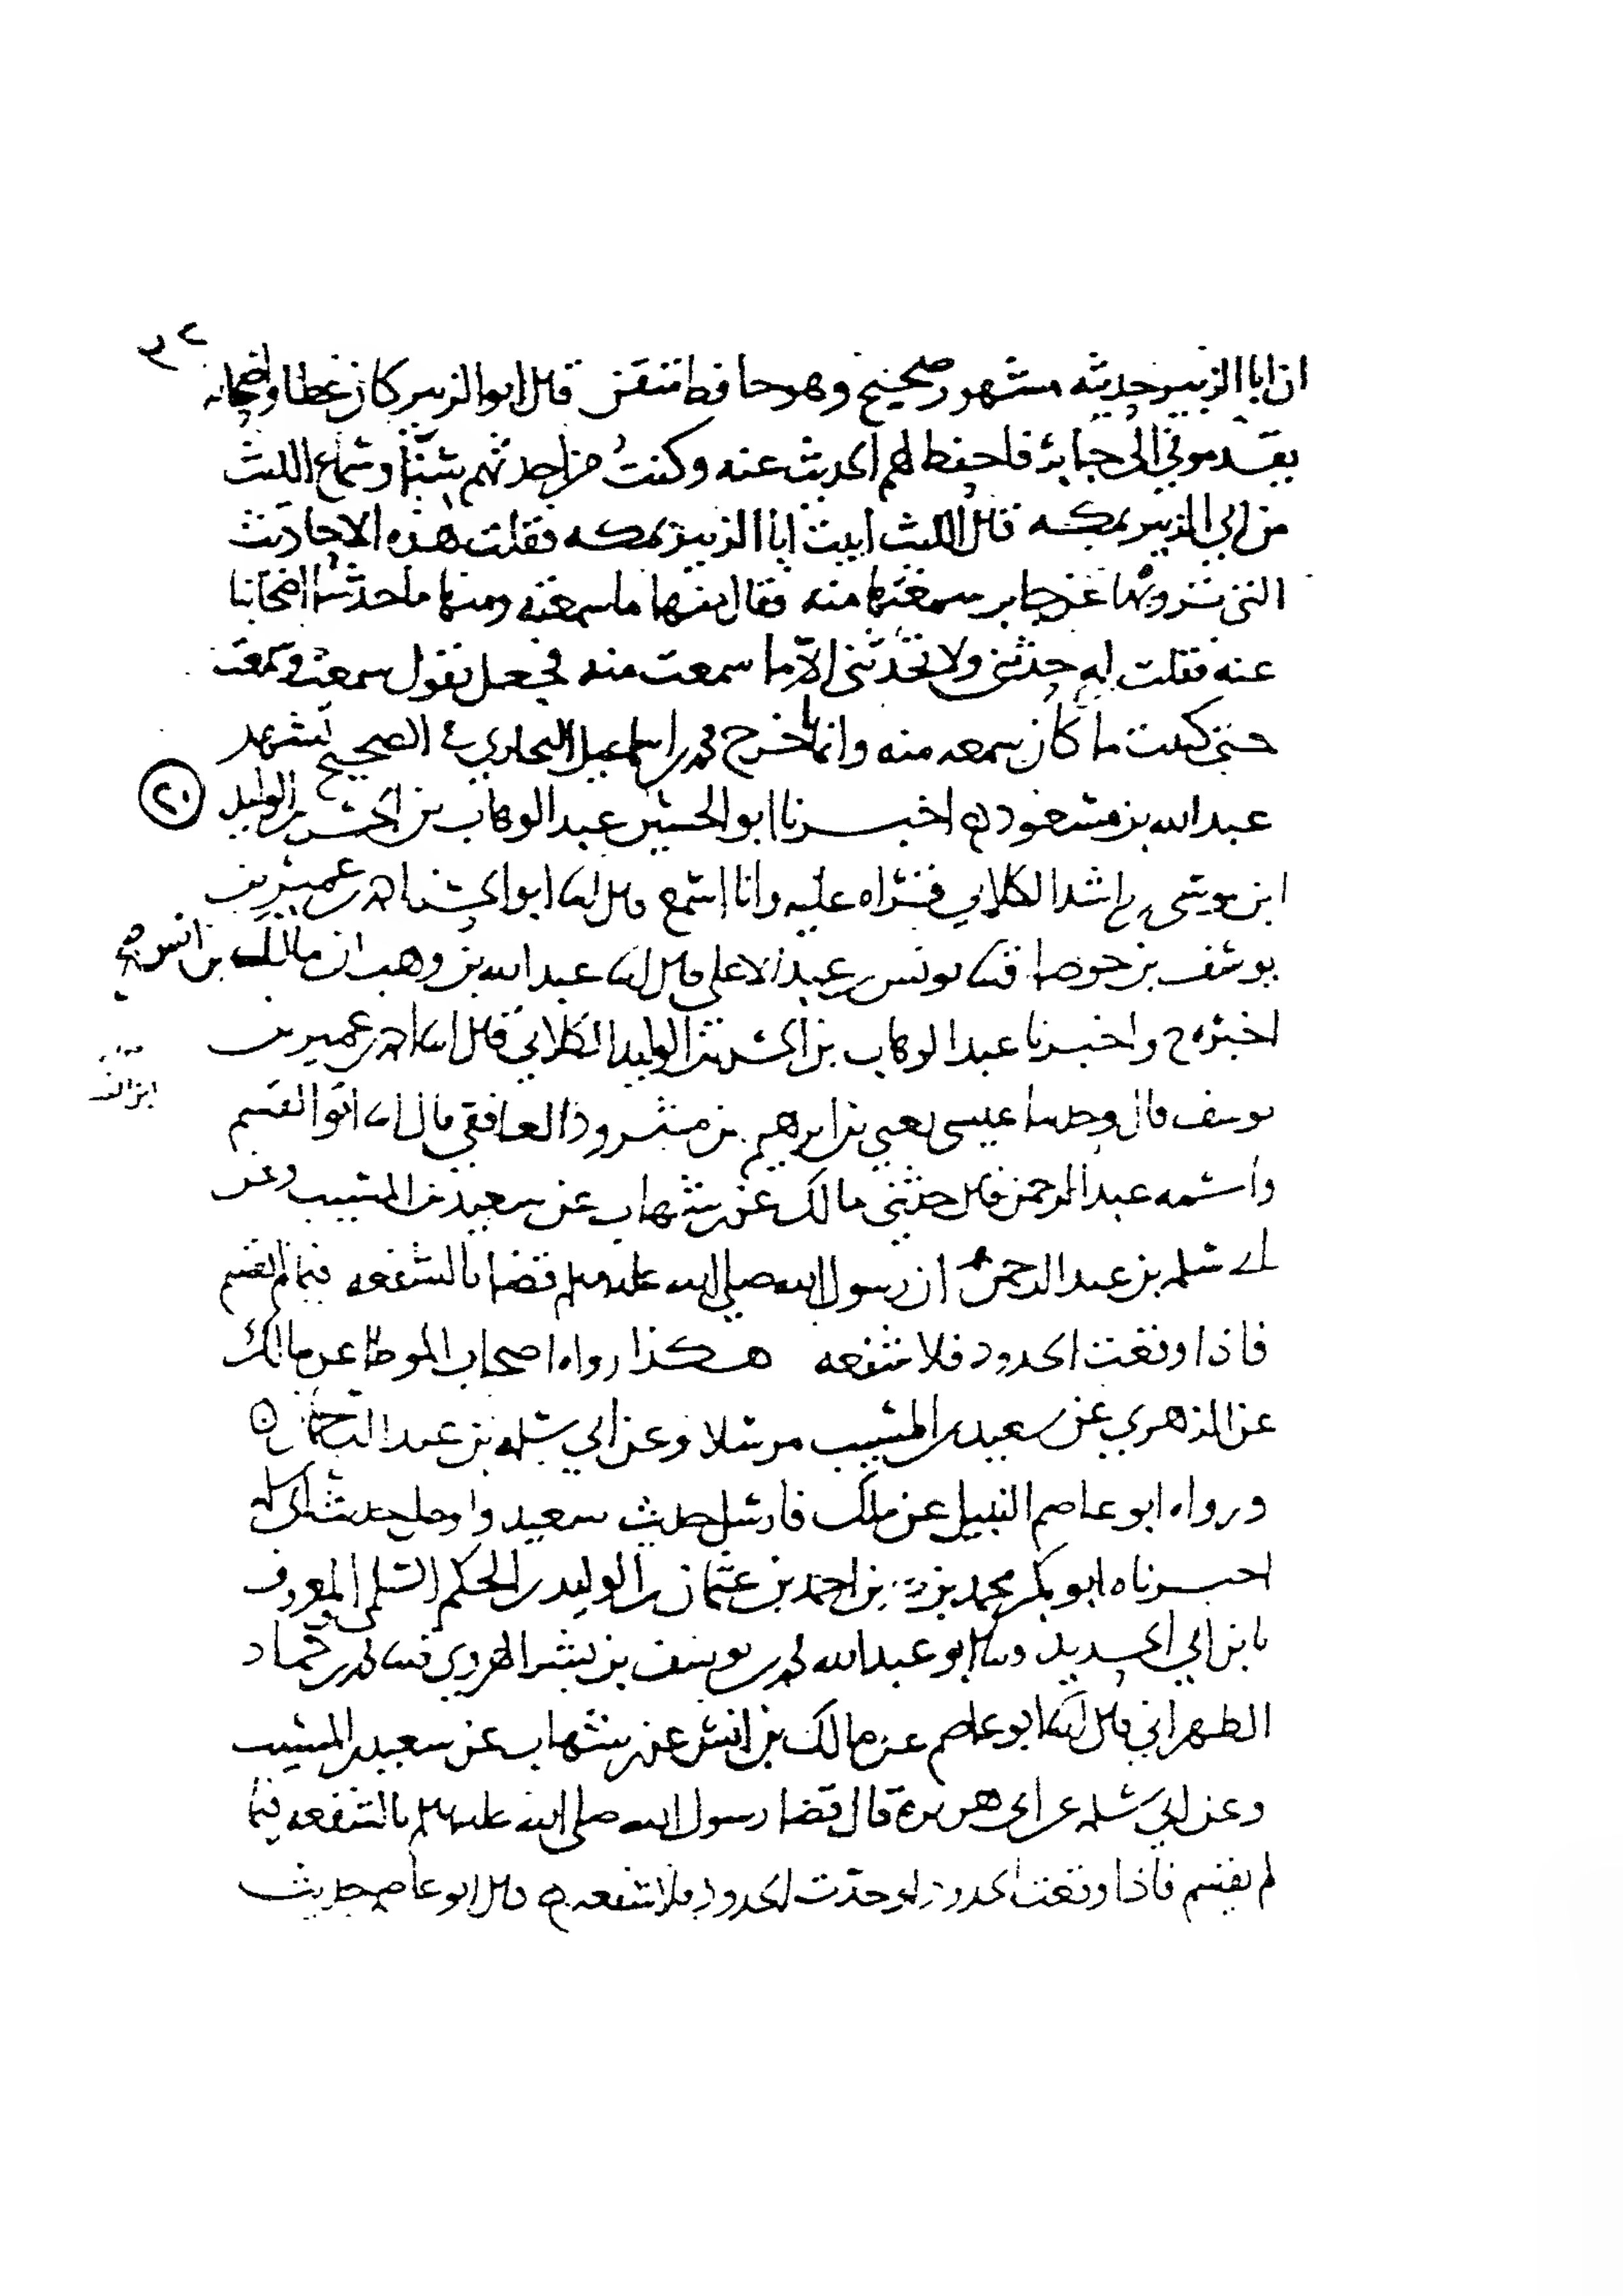 ان ابا الزبير حديثه مشهور صحيح وهو حافظ متقن قال ابو الزبير كان عطا واصحابه
يقدموني الى جابر فاحفظ لهم الحديث عنه وكنت من احدثهم سنا وسماع الليث
من ابي الزبير بمكه قال الليث اتيت ابا الزبير بمكه فقلت هذه الاحاديث
التي ترويها عن جابر سمعتها منه فقال منها ما سمعته ومنها ما حدثنا اصحابنا
عنه فقلت له حدثني ولا تحدثني الا ما سمعت منه فجعل يقول سمعت وسمعت
حتى كتبت ما كان سمعه منه وانما اخرج محمد بن اسماعيل البخاري في الصحيح تشهد
عبد الله بن مسعود اخبرنا ابو الحسين عبد الوهاب بن الحسن بن الوليد
٢٠
ابن موسى بن راشد الكلابي قراه عليه وانا اسمع قال انا ابو الحسن احمد بن عمير بن
يوسف بن جوصا قثنا يونس بن عبد الاعلى قال انا عبد الله بن وهب ان مالك بن انس
اخبره ح واخبرنا عبد الوهاب بن الحسن بن الوليد الكلابي قال انا احمد بن عمير بن
يوسف قال وحدثنا عيسى يعني بن ابرهيم بن مثرود الغافقي قال انا ابو القسم
واسمه عبد الرحمن قال حدثني مالك عن بن شهاب عن سعيد بن المسيب وعن
ابي سلمه بن عبد الرحمن ان رسول الله صلى الله عليه وسلم قضا بالشفعه فيما لم يقسم
فاذا وقعت الحدود فلا شفعه هكذا رواه اصحاب الموطا عن مالك
عن الزهري عن سعيد بن المسيب مرسلا وعن ابي سلمه بن عبد الرحمن
ورواه ابو عاصم النبيل عن ملك فارسل حديث سعيد واوصل حديث ابي سلمه
اخبرناه ابو بكر محمد بن احمد بن عثمان بن الوليد بن الحكم السلمي المعروف
بابن ابي الحديد قثنا ابو عبد الله محمد بن يوسف بن بشر الهروي قثنا محمد بن حماد
الطهراني قال انا ابو عاصم عن مالك بن انس عن بن شهاب عن سعيد بن المسيب
وعن ابي سلمه عن ابي هريرة قال قضا رسول الله صلى الله عليه وسلم بالشفعه فيما
لم يقسم فاذا وقعت الحدود او حدت الحدود فلا شفعه قال ابو عاصم حديث